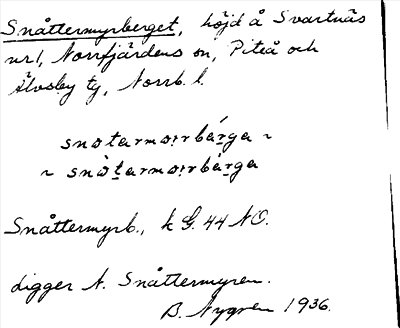 Snåttermyrberget, höjd å Svartnäs
nr 1, Norrfjärdens sn, Piteå och
Älvsby tg, Norrb. l.
snøtarmo̤rrbárga ~
~ snøtarmo̤rrbárga
Snåttermyrb., k G. 44 NO.
Ligger N. Snåttermyren.
B. Nygren 1936.